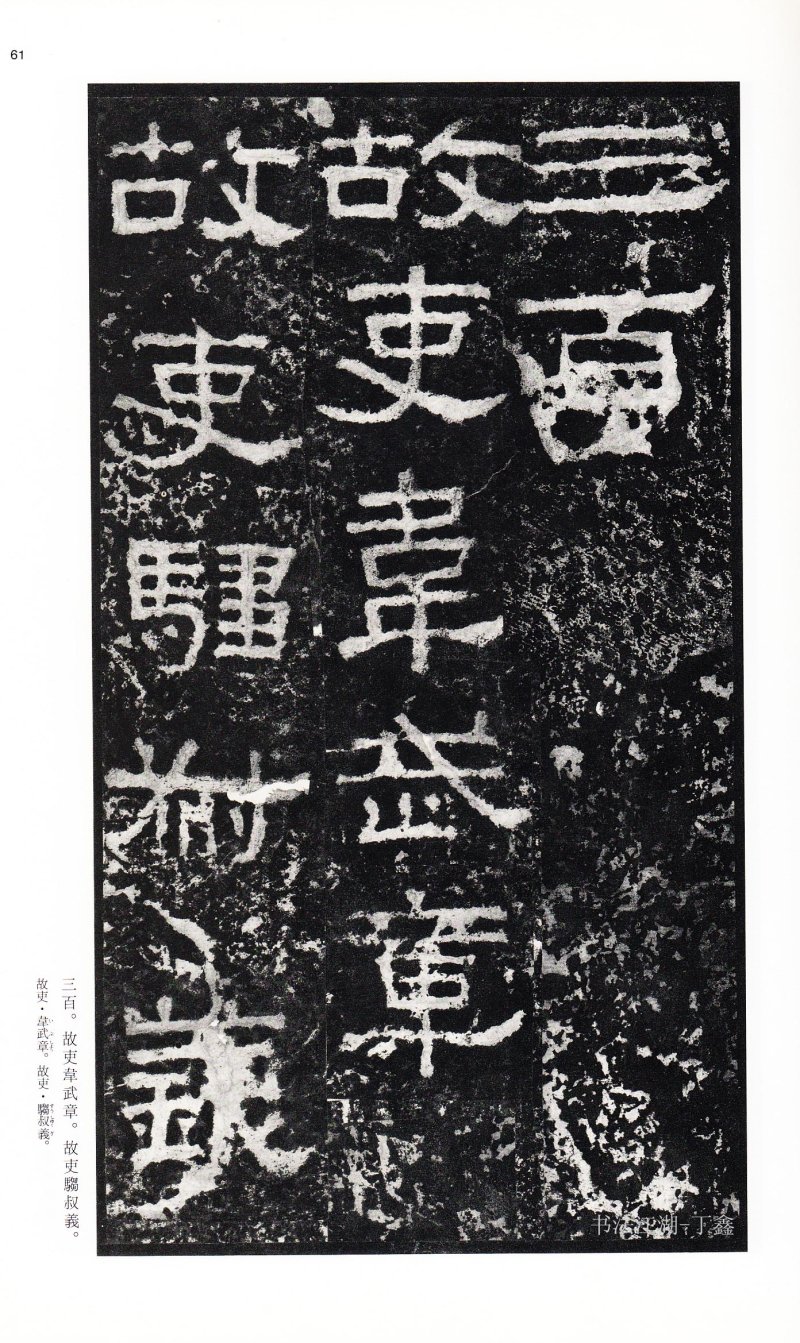 61
三百
故吏韋武章
故吏騶叔義
三百。故吏韋武章。故吏騶叔義。
故吏・韋武章。故吏・騶叔義。
书法江湖-丁鑫